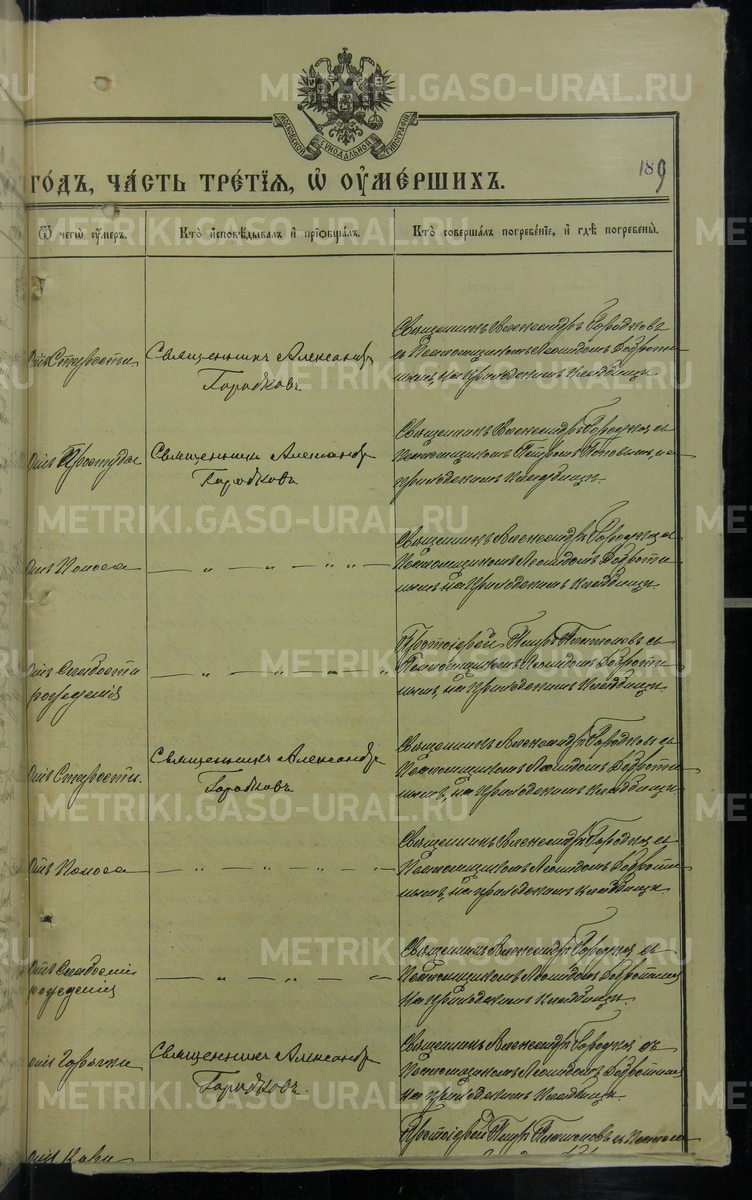 METRIKI.GASO-URAL.RU
МОСКОВСКОЙ СѴНОДАЛЬНОЙ ТИПОГРАФІИ
189
ГОДЪ, ЧАСТЬ ТРЕТІЯ, Ѡ ОУМЕРШИХЪ.
Ѿ чегѡ оумеръ.
Кто исповѣдывалъ и пріобщалъ.
Кто совершалъ погребеніе, и гдѣ погребены.
Отъ Старости
Священникъ Александръ
Городковъ
Священникъ Александръ Городковъ
съ Псаломщикомъ Леонидомъ Доброти
нымъ, на Приходскомъ Кладбищѣ
Отъ Простуды
Священникъ Александръ
Городковъ
Священникъ Александръ Городковъ съ
Псаломщикомъ Петромъ Поповымъ, на
приходскомъ Кладбищѣ
METRIKI.GASO-URAL.RU
Отъ Поноса
— „ — „ — „ „ —
Священникъ Александръ Городковъ съ
Псаломщикомъ Леонидомъ Доброти
нымъ, на Приходскомъ Кладбищѣ
Отъ Слабости
рожденія
— „ — „ — „
Протоіерей Петръ съ
Псаломщикомъ Леонидомъ Доброти
нымъ, на Приходскомъ Кладбищѣ
METRIKI.GASO-URAL.RU
Отъ Старости.
Священникъ Александръ
Городковъ
Священникъ Александръ Городковъ съ
Псаломщикомъ Леонидомъ Доброти
нымъ, на Приходскомъ Кладбищѣ
METRIKI.GASO-URAL.RU
Отъ Поноса
— „ — „ — „ —
Священникъ Александръ Городковъ съ
Псаломщикомъ Леонидомъ Доброти
нымъ, на приходскомъ Кладбищѣ
METRIKI.GASO-URAL.RU
Отъ Слабости
рожденія
— „ — „ — „
Священникъ Александръ Городковъ съ
Псаломщикомъ Леонидомъ
на Приходскомъ Кладбищѣ
Отъ Горячки
Священникъ Александръ
Городковъ.
Священникъ Александръ Городковъ съ
Псаломщикомъ Леонидомъ
на приходскомъ Кладбищѣ
METRIKI.GASO-URAL.RU
Протоіерей Петръ съ